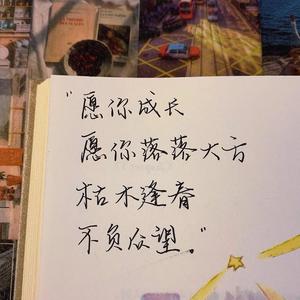 "愿你成长
愿你落落大方
枯木逢春
不负众望。"